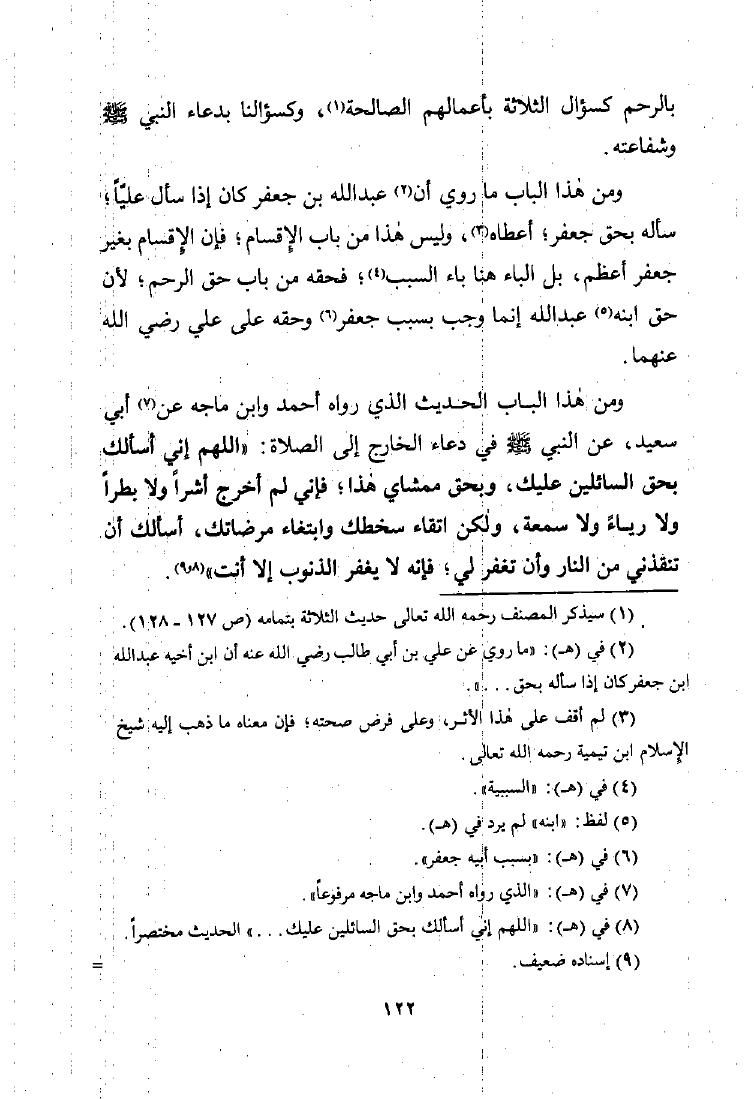 بالرحم كسؤال الثلاثة بأعمالهم الصالحة(١)، وكسؤالنا بدعاء النبي ﷺ
وشفاعته.
ومن هٰذا الباب ما روي أن(٢) عبدالله بن جعفر كان إذا سأل عليّاً؛
سأله بحق جعفر؛ أعطاه(٣)، وليس هٰذا من باب الإقسام؛ فإن الإقسام بغير
جعفر أعظم، بل الباء هنا باء السبب(٤)؛ فحقه من باب حق الرحم؛ لأن
حق ابنه(٥) عبدالله إنما وجب بسبب جعفر(٦) وحقه على علي رضي الله
عنهما.
ومن هٰذا البـاب الحـديث الذي رواه أحمد وابن ماجه عن(٧) أبي
سعيد، عن النبي ﷺ في دعاء الخارج إلى الصلاة: «اللهم إني أسألك
بحق السائلين عليك، وبحق ممشاي هٰذا؛ فإني لم أخرج أشراً ولا بطراً
ولا ريـاءً ولا سمعة، ولكن اتقاء سخطك وابتغاء مرضاتك، أسألك أن
تنقذني من النار وأن تغفر لي؛ فإنه لا يغفر الذنوب إلا أنت»(٨و٩).
(١) سيذكر المصنف رحمه الله تعالى حديث الثلاثة بتمامه (ص ١٢٧ - ١٢٨).
(٢) في (هـ): «ما روي عن علي بن أبي طالب رضي الله عنه أن ابن أخيه عبدالله
ابن جعفر كان إذا سأله بحق...».
(٣) لم أقف على هٰذا الأثـر، وعلى فرض صحته؛ فإن معناه ما ذهب إليه شيخ
الإسلام ابن تيمية رحمه الله تعالى.
(٤) في (هـ): «السببية».
(٥) لفظ: «ابنه» لم يرد في (هـ).
(٦) في (هـ): «بسبب أبيه جعفر».
(٧) في (هـ): «الذي رواه أحمد وابن ماجه مرفوعاً».
(٨) في (هـ): «اللهم إني أسألك بحق السائلين عليك...» الحديث مختصراً.
(٩) إسناده ضعيف.
=
١٢٢